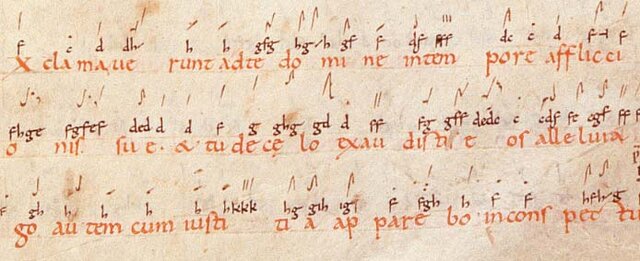 f c d dh h h gfg hgh gf f df fff dc c d f f
X clamaue runt adte do mi ne inten pore afflicci
fhge fgfef ded d d f g ghg gd d ff fg gff dedc c cd fe cgf ff
o nis. su e. & tu de cę lo exau disti e os alleluia
f gh h h h hkkk hg gih igi f fgh h f f
go au tem cum iusti ti a ap pare bo in cons pec tu